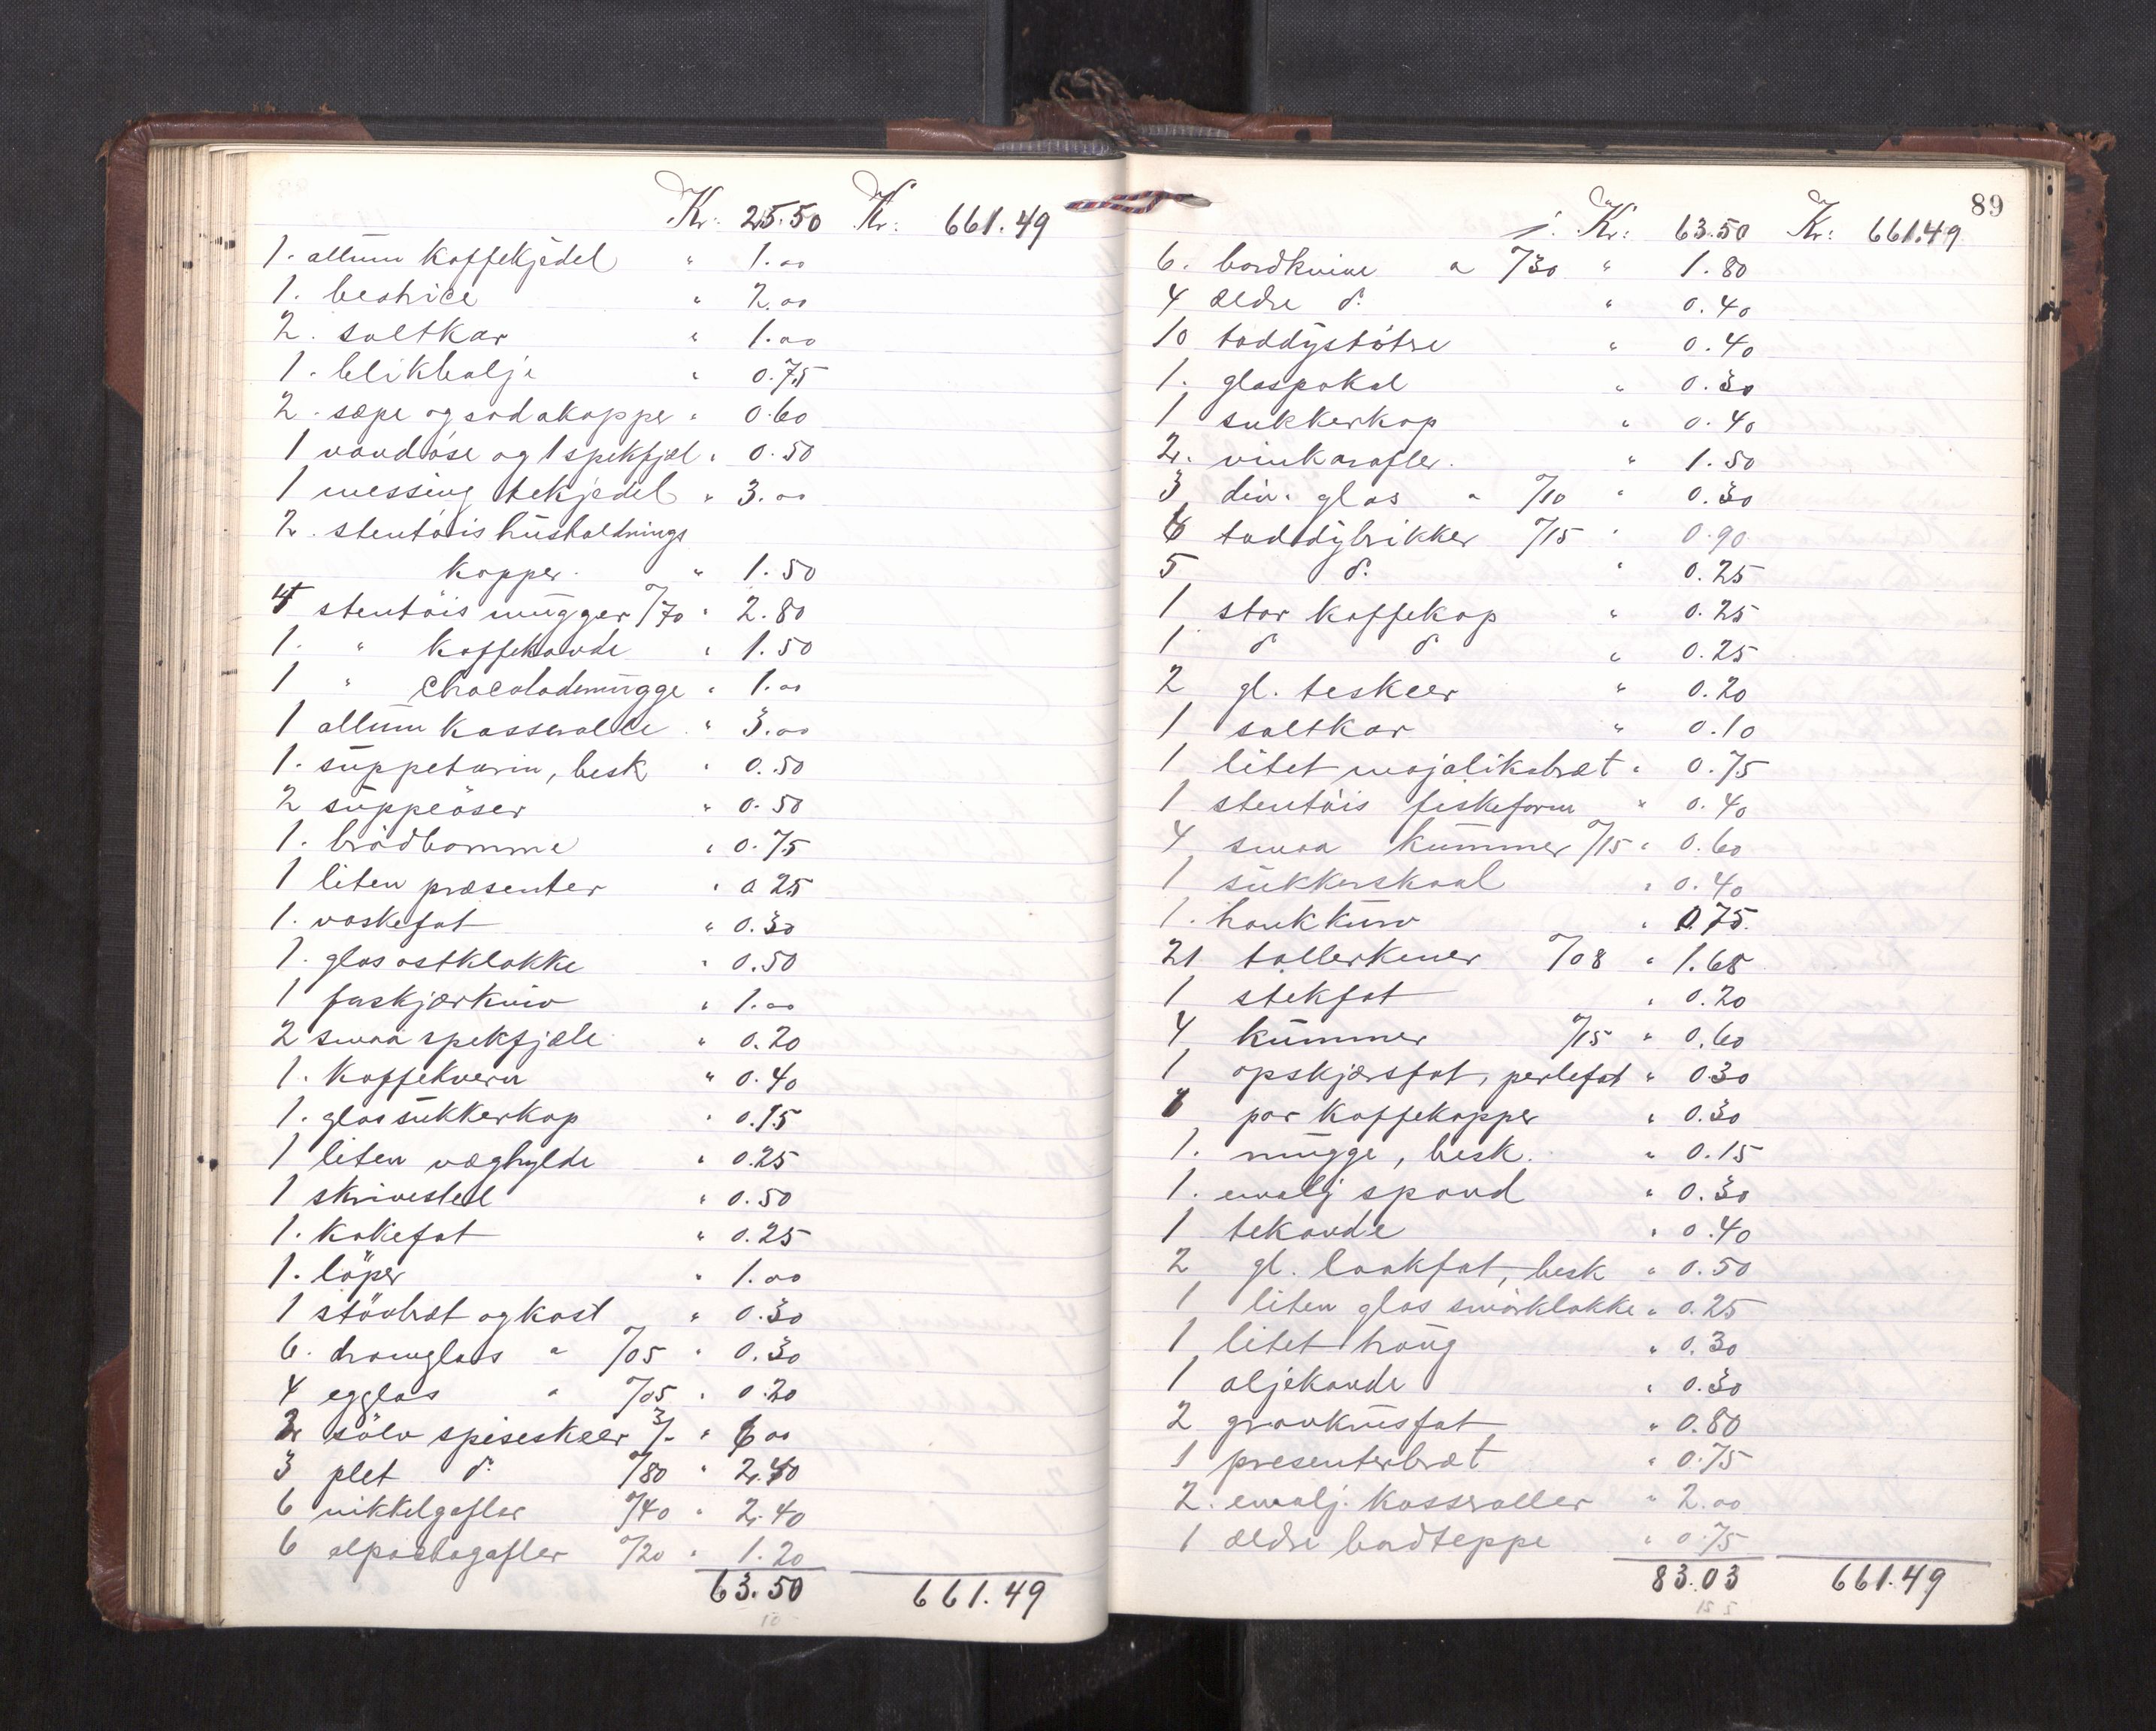 Kr: 25.50 Kr: 661.49
1. allum kaffekjedel " 1.00
1. bestrice " 2.00
2. saltkar " 1.00
1. blikbalje " 0.75
2. sæpe og sodakopper " 0.60
1 vandöse og 1 spekfjæl " 0.50
1 messing tekjedel " 3.00
2. stentöis husholdnings
kopper. " 1.50
4 stentöis mugger %70 " 2.80
1. " kaffekande " 1.50
1 " Chocolademugge " 1.00
1 allum kasserolle " 3.00
1. suppeterin, besk " 0.50
2 suppeöser " 0.50
1. brödbomme " 0.75
1 liten præsenter " 0.25
1. vaskefat " 0.30
1. glas ostklokke " 0.50
1 forskjærkniv " 1.00
2 smaa spekfjæle " 0.20
1. Kaffekvern " 0.40
1. glas sukkerkop " 0.15
1 liten væghylde " 0.25
1 skrivestel " 0.50
1. kakefat " 0.25
1. löper " 1.00
1 stövbræt og kost " 0.30
6. dramglas a %05 " 0.30
4 egglas " %05 " 0.20
2 sölv spiseskeer 3/- " 6.00
3 plet d. %80 " 2.40
6 nikkelgafler %40 " 2.40
6 alpaccagafler %20 " 1.20
63.50 661.49
89
Kr: 63.50 Kr: 661.49
6. bordknive a %30 " 1.80
4 ældre d. " 0.40
10 toddystötre " 0.40
1. glaspokal " 0.30
1 sukkerkop " 0.40
2. vinkarafler. " 1.50
3 div. glas a %10 " 0.30
6 toddybrikker %15 " 0.90
5 d. " 0.25
1 stor kaffekop " 0.25
1 d d " 0.25
2 gl. teskeer " 0.20
1 saltkar " 0.10
1 litet majolikabræt " 0.75
1 stentöis fiskeform " 0.40
4 smaa kummer %15 " 0.60
1 sukkerskaal " 0.40
1. hankkurv " 0.75
21 tallerkener %08 " 1.68
1 stekfat " 0.20
4 kummer %15 " 0.60
1 opskjærsfat, perlefat " 0.30
1 par kaffekopper " 0.30
1. mugge, besk. " 0.15
1. emalj spand " 0.30
1 tekande " 0.40
2 gl. laakfat, besk " 0.50
1 liten glas smörklokke " 0.25
1 litet traug " 0.30
1 oljekande " 0.30
2 graukrusfat " 0.80
1 presenterbræt " 0.75
2. emalj. kasseroller " 2.00
1 ældre bordteppe " 0.75
83.03 661.49